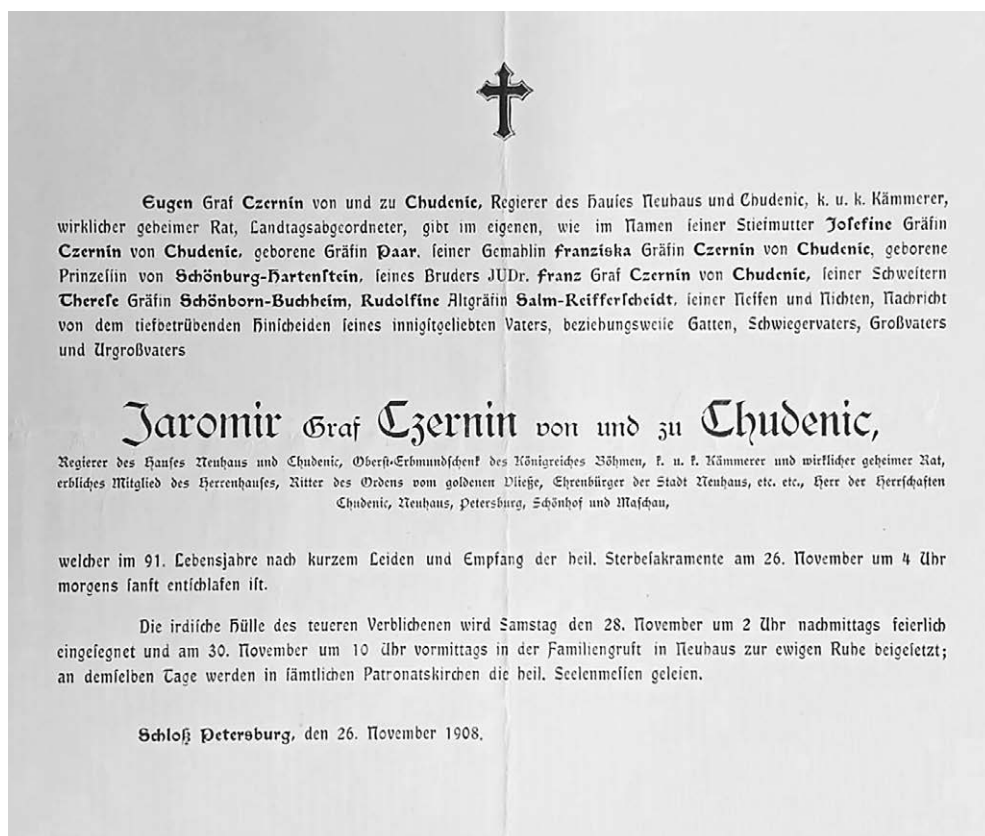 Eugen Graf Czernin von und zu Chudenic, Regierer des Hauſes Neuhaus und Chudenic, k. u. k. Kämmerer,
wirklicher geheimer Rat, Landtagsabgeordneter, gibt im eigenen, wie im Namen ſeiner Stiefmutter Joſefine Gräfin
Czernin von Chudenic, geborene Gräfin Paar, ſeiner Gemahlin Franziska Gräfin Czernin von Chudenic, geborene
Prinzeſſin von Schönburg-Hartenſtein, ſeines Bruders JUDr. Franz Graf Czernin von Chudenic, ſeiner Schweſtern
Thereſe Gräfin Schönborn-Buchheim, Rudolfine Altgräfin Salm-Reifferſcheidt, ſeiner Neffen und Nichten, Nachricht
von dem tiefbetrübenden Hinſcheiden ſeines innigſtgeliebten Vaters, beziehungsweiſe Gatten, Schwiegervaters, Großvaters
und Urgroßvaters
Jaromir Graf Czernin von und zu Chudenic,
Regierer des Hauſes Neuhaus und Chudenic, Oberſt-Erbmundſchenk des Königreiches Böhmen, k. u. k. Kämmerer und wirklicher geheimer Rat,
erbliches Mitglied des Herrenhauſes, Ritter des Ordens vom goldenen Vließe, Ehrenbürger der Stadt Neuhaus, etc. etc., Herr der Herrſchaften
Chudenic, Neuhaus, Petersburg, Schönhof und Maſchau,
welcher im 91. Lebensjahre nach kurzem Leiden und Empfang der heil. Sterbeſakramente am 26. November um 4 Uhr
morgens ſanft entſchlafen iſt.
Die irdiſche Hülle des teueren Verblichenen wird Samstag den 28. November um 2 Uhr nachmittags feierlich
eingeſegnet und am 30. November um 10 Uhr vormittags in der Familiengruft in Neuhaus zur ewigen Ruhe beigeſetzt;
an demſelben Tage werden in ſämtlichen Patronatskirchen die heil. Seelenmeſſen geleſen.
Schloß Petersburg, den 26. November 1908.